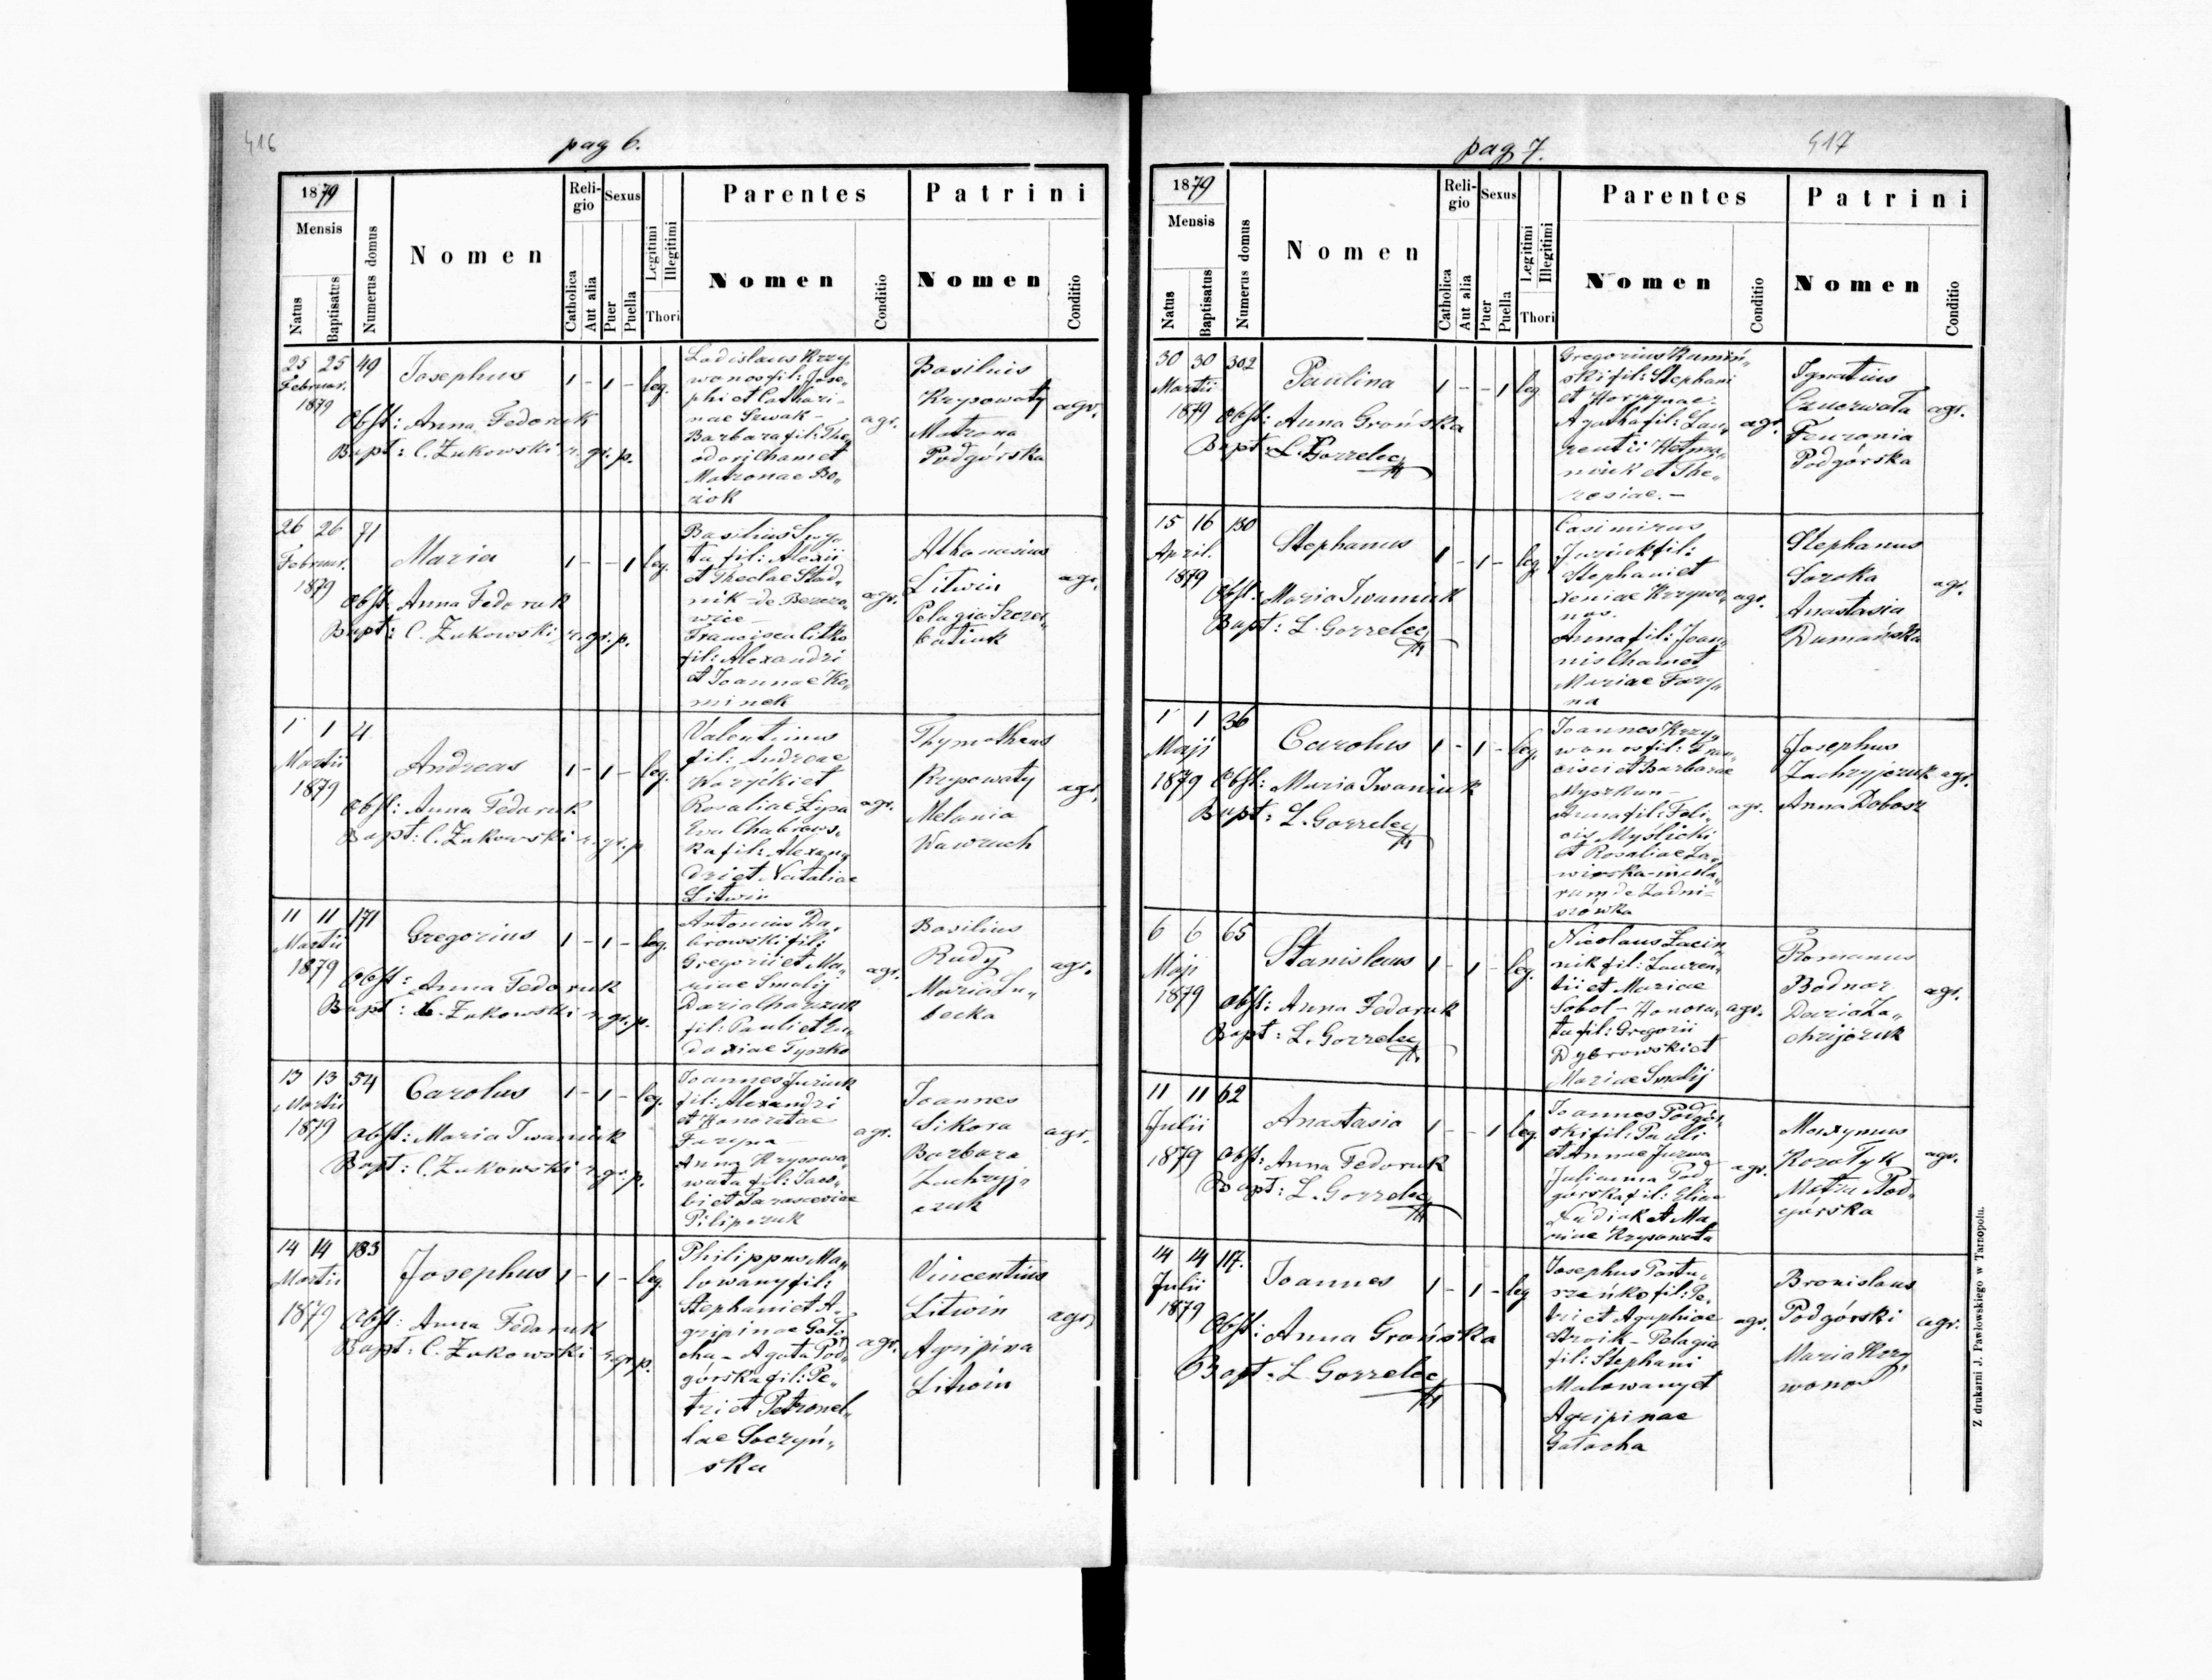 416
pag 6.
1879
Mensis
Natus
Baptisatus
Numerus domus
Nomen
Religio
Catholica
Aut alia
Sexus
Puer
Puella
Legitimi
Illegitimi
Thori
Parentes
Nomen
Conditio
Patrini
Nomen
Conditio
25 25 49
Februar.
1879
Josephus
1 - 1 - leg.
Obst: Anna Fedoruk
Bapt: C. Żukowski r. gr. p.
Ladislaus Krzy„
wonos fil: Jose„
phi et Cathari-
nae Szwak -
Barbara fil: The„
odori Cham et
Matronae Bo„
ziok
agr.
Basilius
Krysowaty
Matrona
Podgórska
agr.
26 26 71
Februar.
1879
Maria
1 - - 1 leg.
Obst: Anna Fedoruk
Bapt: C. Żukowski r. gr. p.
Basilius
ta fil: Alexii
et Theclae Stad„
nik - de Berezo„
wice -
Francisca Citko
fil: Alexandri
et Joannae Ko„
minek
agr.
Athanasius
Litwin
Pelagia Szczer„
batiuk
agr.
1 1 4
Martii
1879
Andreas
1 - 1 - leg.
Obst: Anna Fedoruk
Bapt: C. Żukowski r. gr. p
Valentinus
fil: Andreae
Waryćki et
Rosaliae Łysa
Eva Chabrows„
ka fil: Alexan„
dri et Nataliae
Litwin
agr.
Thymotheus
Krysowaty
Melania
Wawruch
agr.
11 11 171
Martii
1879
Gregorius
1 - 1 - leg.
Obst: Anna Fedoruk
Bapt: C. Żukowski r. gr. p.
Antonius Da„
browski fil:
Gregorii et Ma„
riae Smalij
Daria Charzuk
fil: Pauli et Eu„
doxiae Tyszko
agr.
Basilius
Rudy
Maria Lu„
becka
agr.
13 13 54
Martii
1879
Carolus
1 - 1 - leg.
Obst: Maria Iwaniuk
Bapt: C. Żukowski r. gr. p.
Joannes Juriuk
fil: Alexandri
et Honoratae
Faryna -
Anna Krysowa„
wata fil: Jaco„
bi et Parasceviae
Pilipczuk
agr.
Joannes
Sikora
Barbara
Zachryj„
czuk
agr.
14 14 183
Martii
1879
Josephus
1 - 1 - leg.
Obst: Anna Fedoruk
Bapt: C. Żukowski r. gr. p.
Philippus Ma„
lowany fil:
Stephani et A„
gripinae Gało„
cha - Agata Pod„
górska fil: Pe„
tri et Petronel„
lae Soczyń„
ska
agr.
Vincentius
Litwin
Agripina
Litwin
agr.
pag 7.
417
1879
Mensis
Natus
Baptisatus
Numerus domus
Nomen
Religio
Catholica
Aut alia
Sexus
Puer
Puella
Legitimi
Illegitimi
Thori
Parentes
Nomen
Conditio
Patrini
Nomen
Conditio
30 30 302
Martii
1879
Paulina
1 - - 1 leg
Obst: Anna Grońska
Bapt: L. Gorzelec
Gregorius Kamiń„
ski fil: Stephani
et Horpynae -
Agatha fil: Lau„
rentii Hetma„
niuk et The„
resiae. -
agr.
Ignatius
Czuczwała
Feuronia
Podgórska
agr.
15 16 130
April.
1879
Stephanus
1 - 1 - leg.
Obst: Maria Iwaniuk
Bapt: L. Gorzelec
Casimirus
Juriuk fil:
Stephani et
Xeniae Krzywo„
nos.
Anna fil: Joan„
nis Cham et
Mariae Fary„
na
agr.
Stephanus
Soroka
Anastasia
Dumańska
agr.
1 1 36
Maji
1879
Carolus
1 - 1 - leg.
Obst: Maria Iwaniuk
Bapt: L. Gorzelec
Joannes Krzy„
wonos fil: Fran„
cisci et Barbarae
Myszkun -
Anna fil: Feli„
cis Myślicki
et Rosaliae Za„
wirska - incola„
rum de Zadni-
szówka
agr.
Josephus
Zachryjczuk
Anna Dobosz
agr.
6 6 65
Maji
1879
Stanislaus
1 - 1 - leg.
Obst: Anna Fedoruk
Bapt: L. Gorzelec
Nicolaus Zacin„
nik fil: Lauren„
tii et Mariae
Sobol - Honora„
ta fil: Gregorii
Dąbrowski et
Mariae Smalij
agr.
Romanus
Bodnar
Daria Za„
chrijczuk
agr.
11 11 62
Julii
1879
Anastasia
1 - - 1 leg.
Obst: Anna Fedoruk
Bapt: L. Gorzelec
Joannes Podgór„
ski fil: Pauli
et Annae Jurwa
Julianna Pod„
górska fil: Eliae
Nudiak et Ma„
riae Krysowata
agr.
Maxymus
Korołyk
Motru Pod„
górska
agr.
14 14 117.
Julii
1879
Joannes
1 - 1 - leg
Obst: Anna Grońska
Bapt: L. Gorzelec
Josephus Pastu„
szeńko fil: Pe„
tri et Agaphiae
Stroik - Pelagia
fil: Stephani
Malowany et
Agripinae
Gałocha
agr.
Bronislaus
Podgórski
Maria Krzy„
wonos
agr.
Z drukarni J. Pawłowskiego w Tarnopolu.